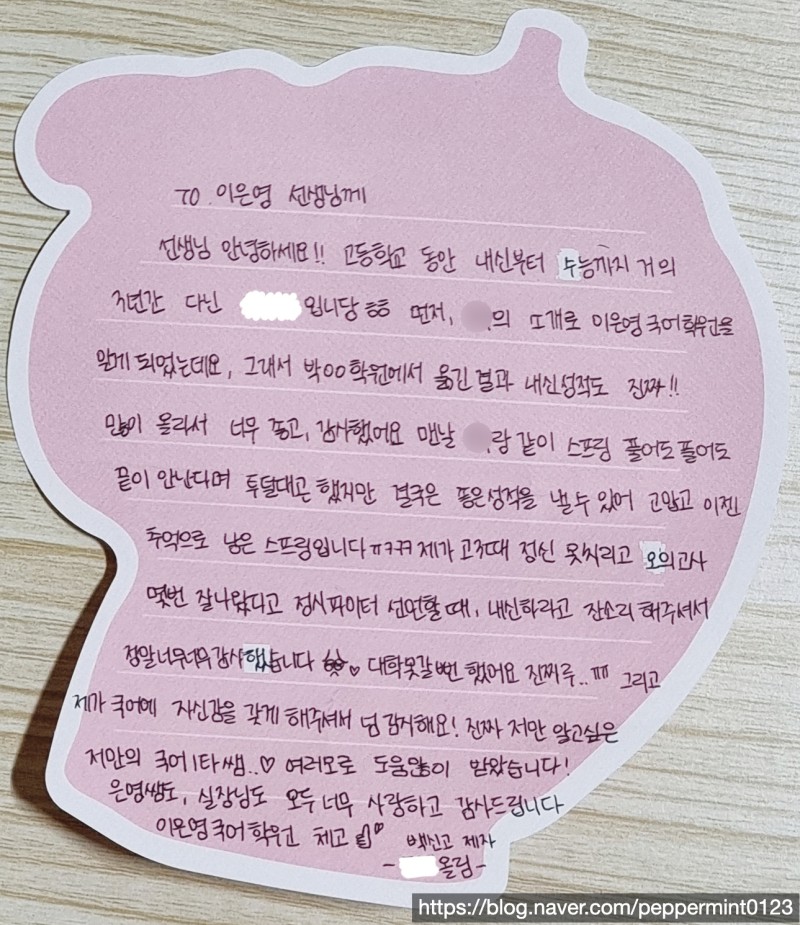 TO. 이은영 선생님께
선생님 안녕하세요!! 고등학교 동안 내신부터 수능까지 거의
3년간 다닌 입니당 ㅎㅎ 먼저, 의 소개로 이은영국어학원을
알게 되었는데요, 그래서 박OO학원에서 옮긴 결과 내신성적도 진짜!!
많이 올라서 너무 좋고, 감사했어요 맨날 랑 같이 스프링 풀어도풀어도
끝이 안난다며 투덜대곤 했지만 결국은 좋은성적을 낼수 있어 고맙고 이젠
추억으로 남은 스프링입니다ㅠㅋㅋㅋ 제가 고3때 정신 못차리고 모의고사
몇번 잘나왔다고 정시파이터 선언할때, 내신하라고 잔소리 해주셔서
정말너무너무감사했습니다 ♡ 대학못갈뻔 했어요 진짜루..ㅠㅠ 그리고
제가 국어에 자신감을 갖게 해주셔서 넘 감사해요! 진짜 저만 알고싶은
저만의 국어1타쌤..♡ 여러모로 도움많이 받았습니다!
은영쌤도, 실장님도 모두 너무 사랑하고 감사드립니다
이은영국어학원 최고 백신고 제자
- 올림-
https://blog.naver.com/peppermint0123